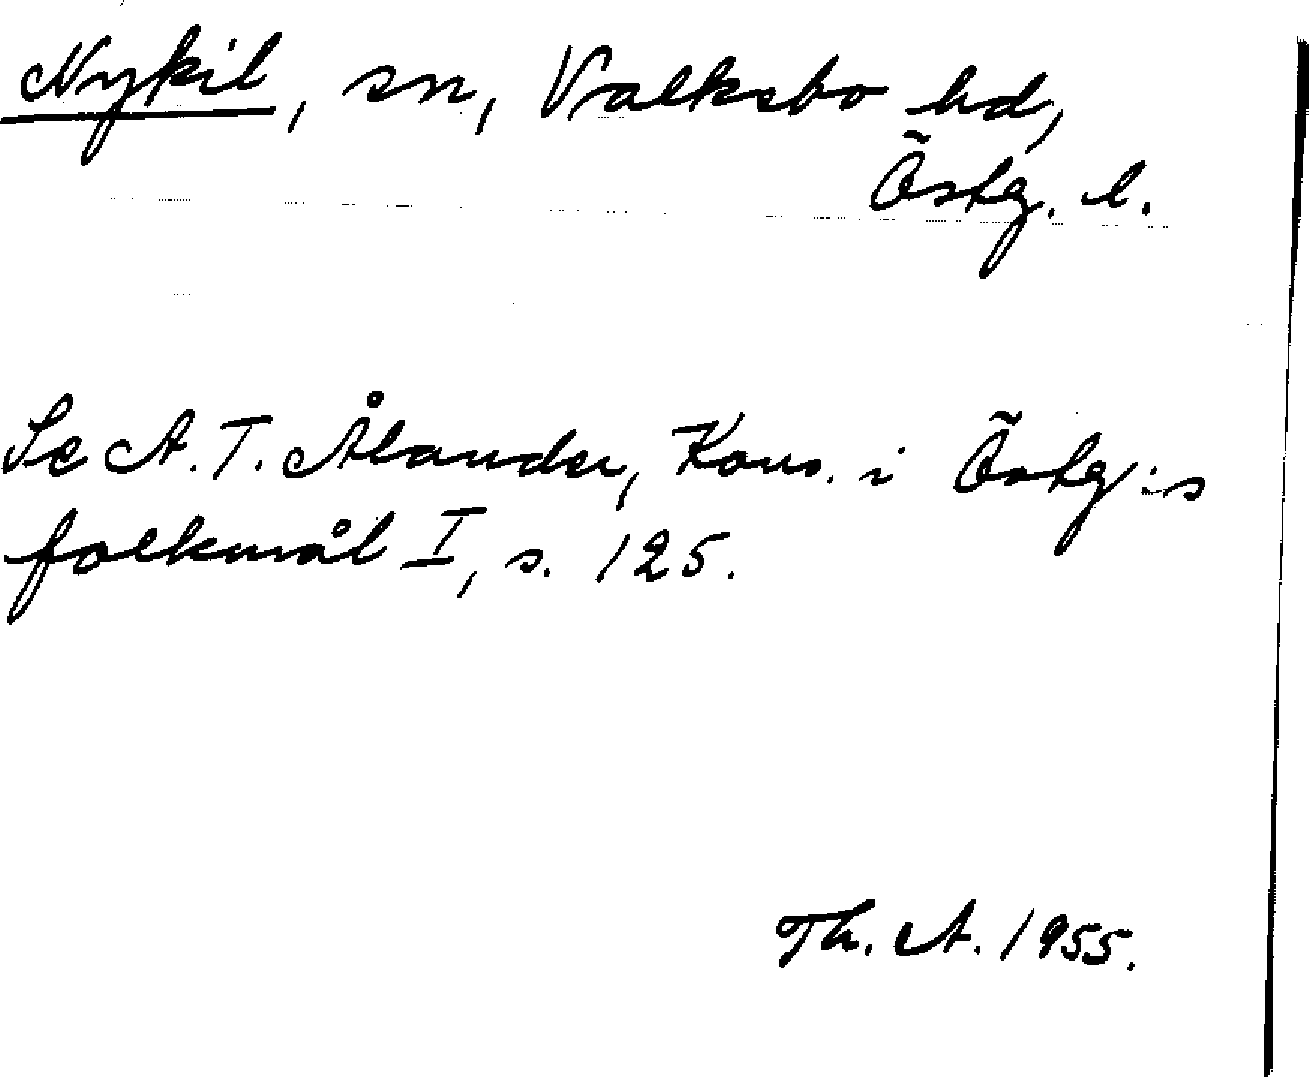 Nykil, sn, Valkebo hd,
Östg. l.
Se A. T. Ålander, Kons. i Östg:s
folkmål I, s. 125.
Th. A. 1955.